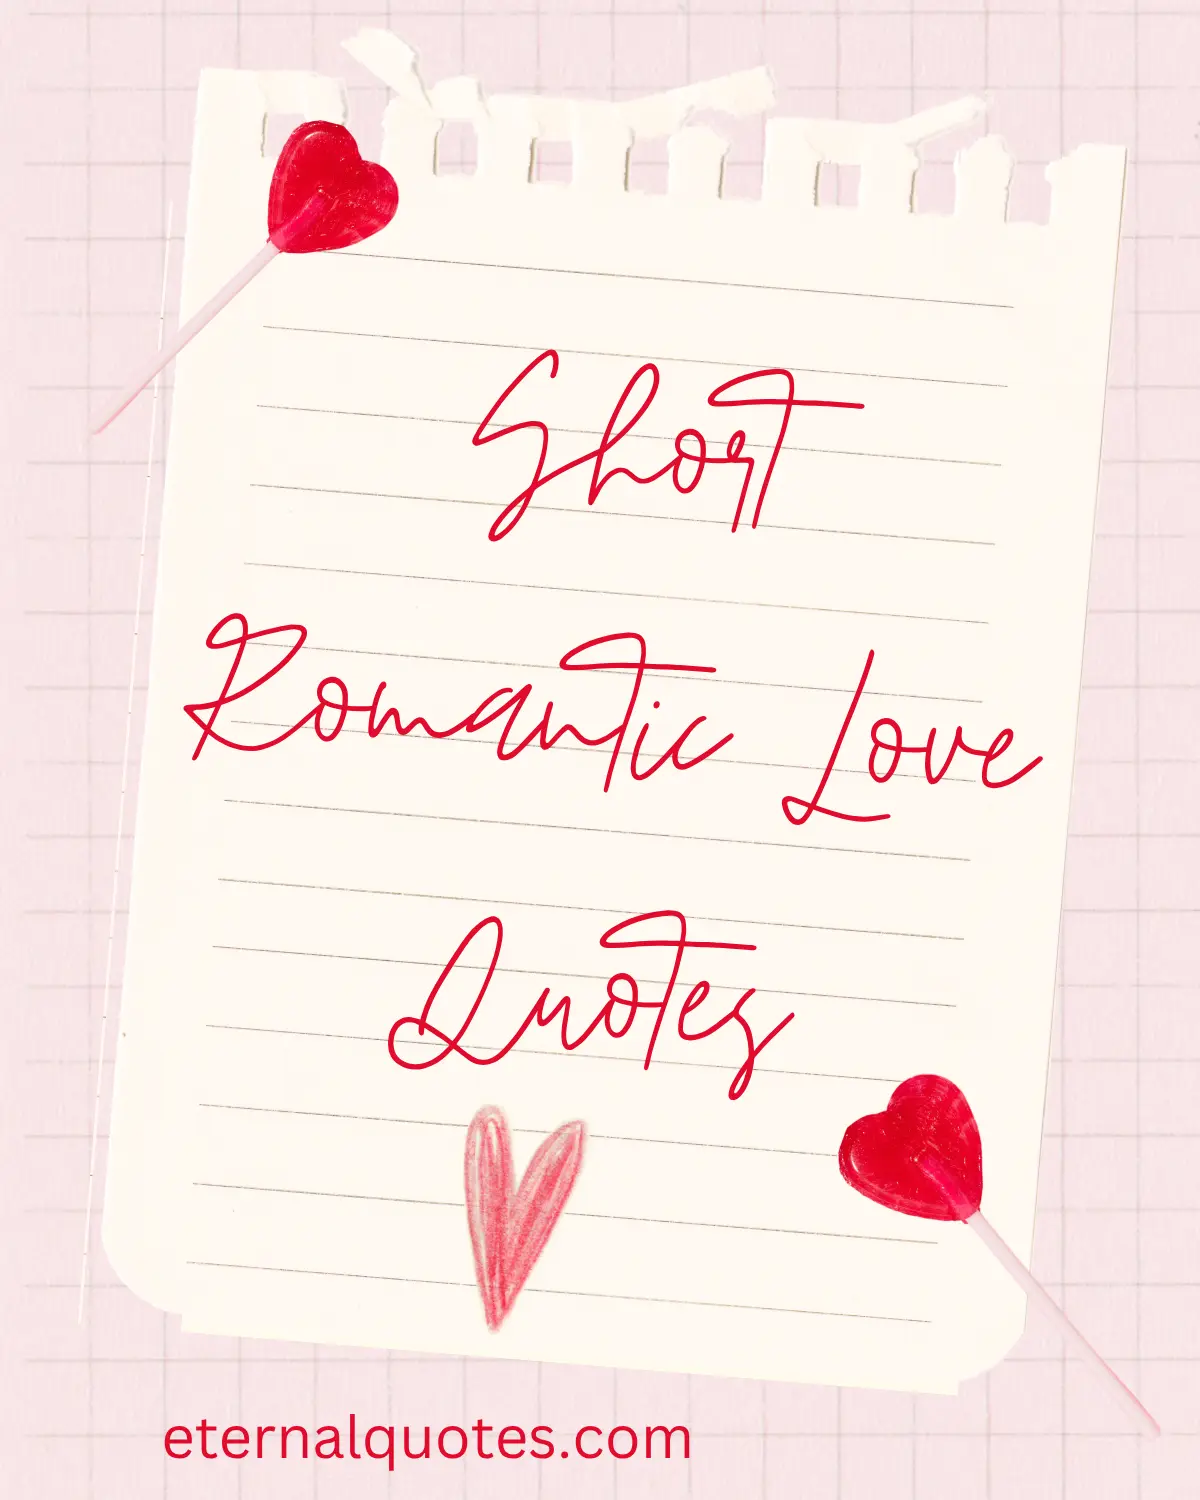 Short
Romantic Love
Quotes
eternalquotes.com